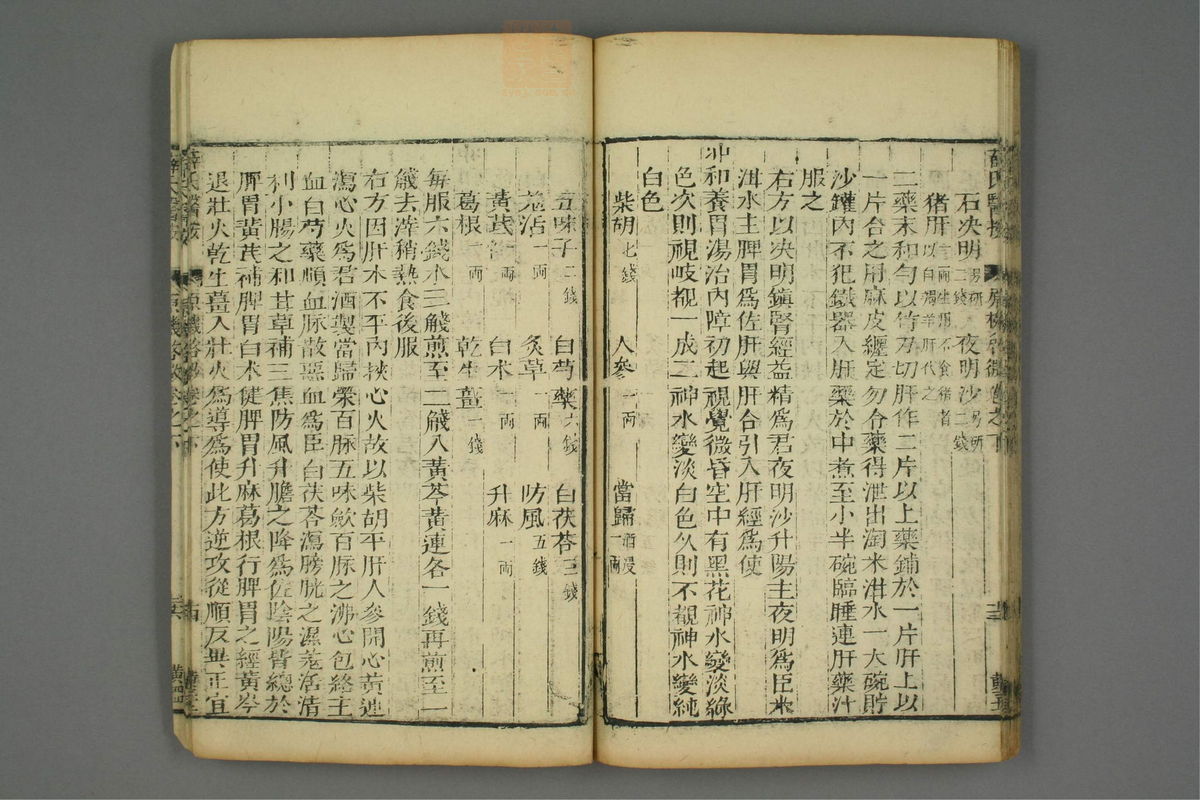 石决明二錢另研 夜明沙二錢另研
猪肝一兩生用不食猪者以白羯羊肝代之
二藥末和勻以竹刀切肝作二片以上藥鋪於一片肝上以
一片合之用麻皮纏定勿令藥得泄出淘米泔水一大碗貯
沙鑵內不犯鐵器入肝藥於中煮至小半碗臨睡連肝藥汁
服之
右方以决明鎭腎經益精爲君夜明沙升陽主夜明爲臣米
泔水主脾胃爲佐肝與肝合引入肝經爲使
冲和養胃湯治內障初起視覺微昏空中有黑花神水變淡綠
色次則視岐覩一成二神水變淡白色久則不覩神水變純
白色
柴胡七錢 人參一兩 當歸酒浸一兩
五味子二錢 白芍藥六錢 白茯苓三錢
羌活一兩 炙草一兩 防風五錢
黃芪一兩 白朮一兩 升麻一兩
葛根一兩 乾生薑一錢
每服六錢水三盞煎至二盞入黃芩黃連各一錢再煎至一
盞去滓稍熱食後服
右方因肝木不平內挾心火故以柴胡平肝人參開心黃連
瀉心火爲君酒製當歸榮百脉五味歛百脉之沸心包絡主
血白芍藥順血脉散惡血爲臣白茯苓瀉膀胱之濕羌活淸
利小腸之和甘草補三焦防風升膽之降爲佐陰陽皆總於
脾胃黃芪補脾胃白朮健脾胃升麻葛根行脾胃之經黃芩
退壯火乾生薑入壯火爲導爲使此方逆攻從順反異正宜